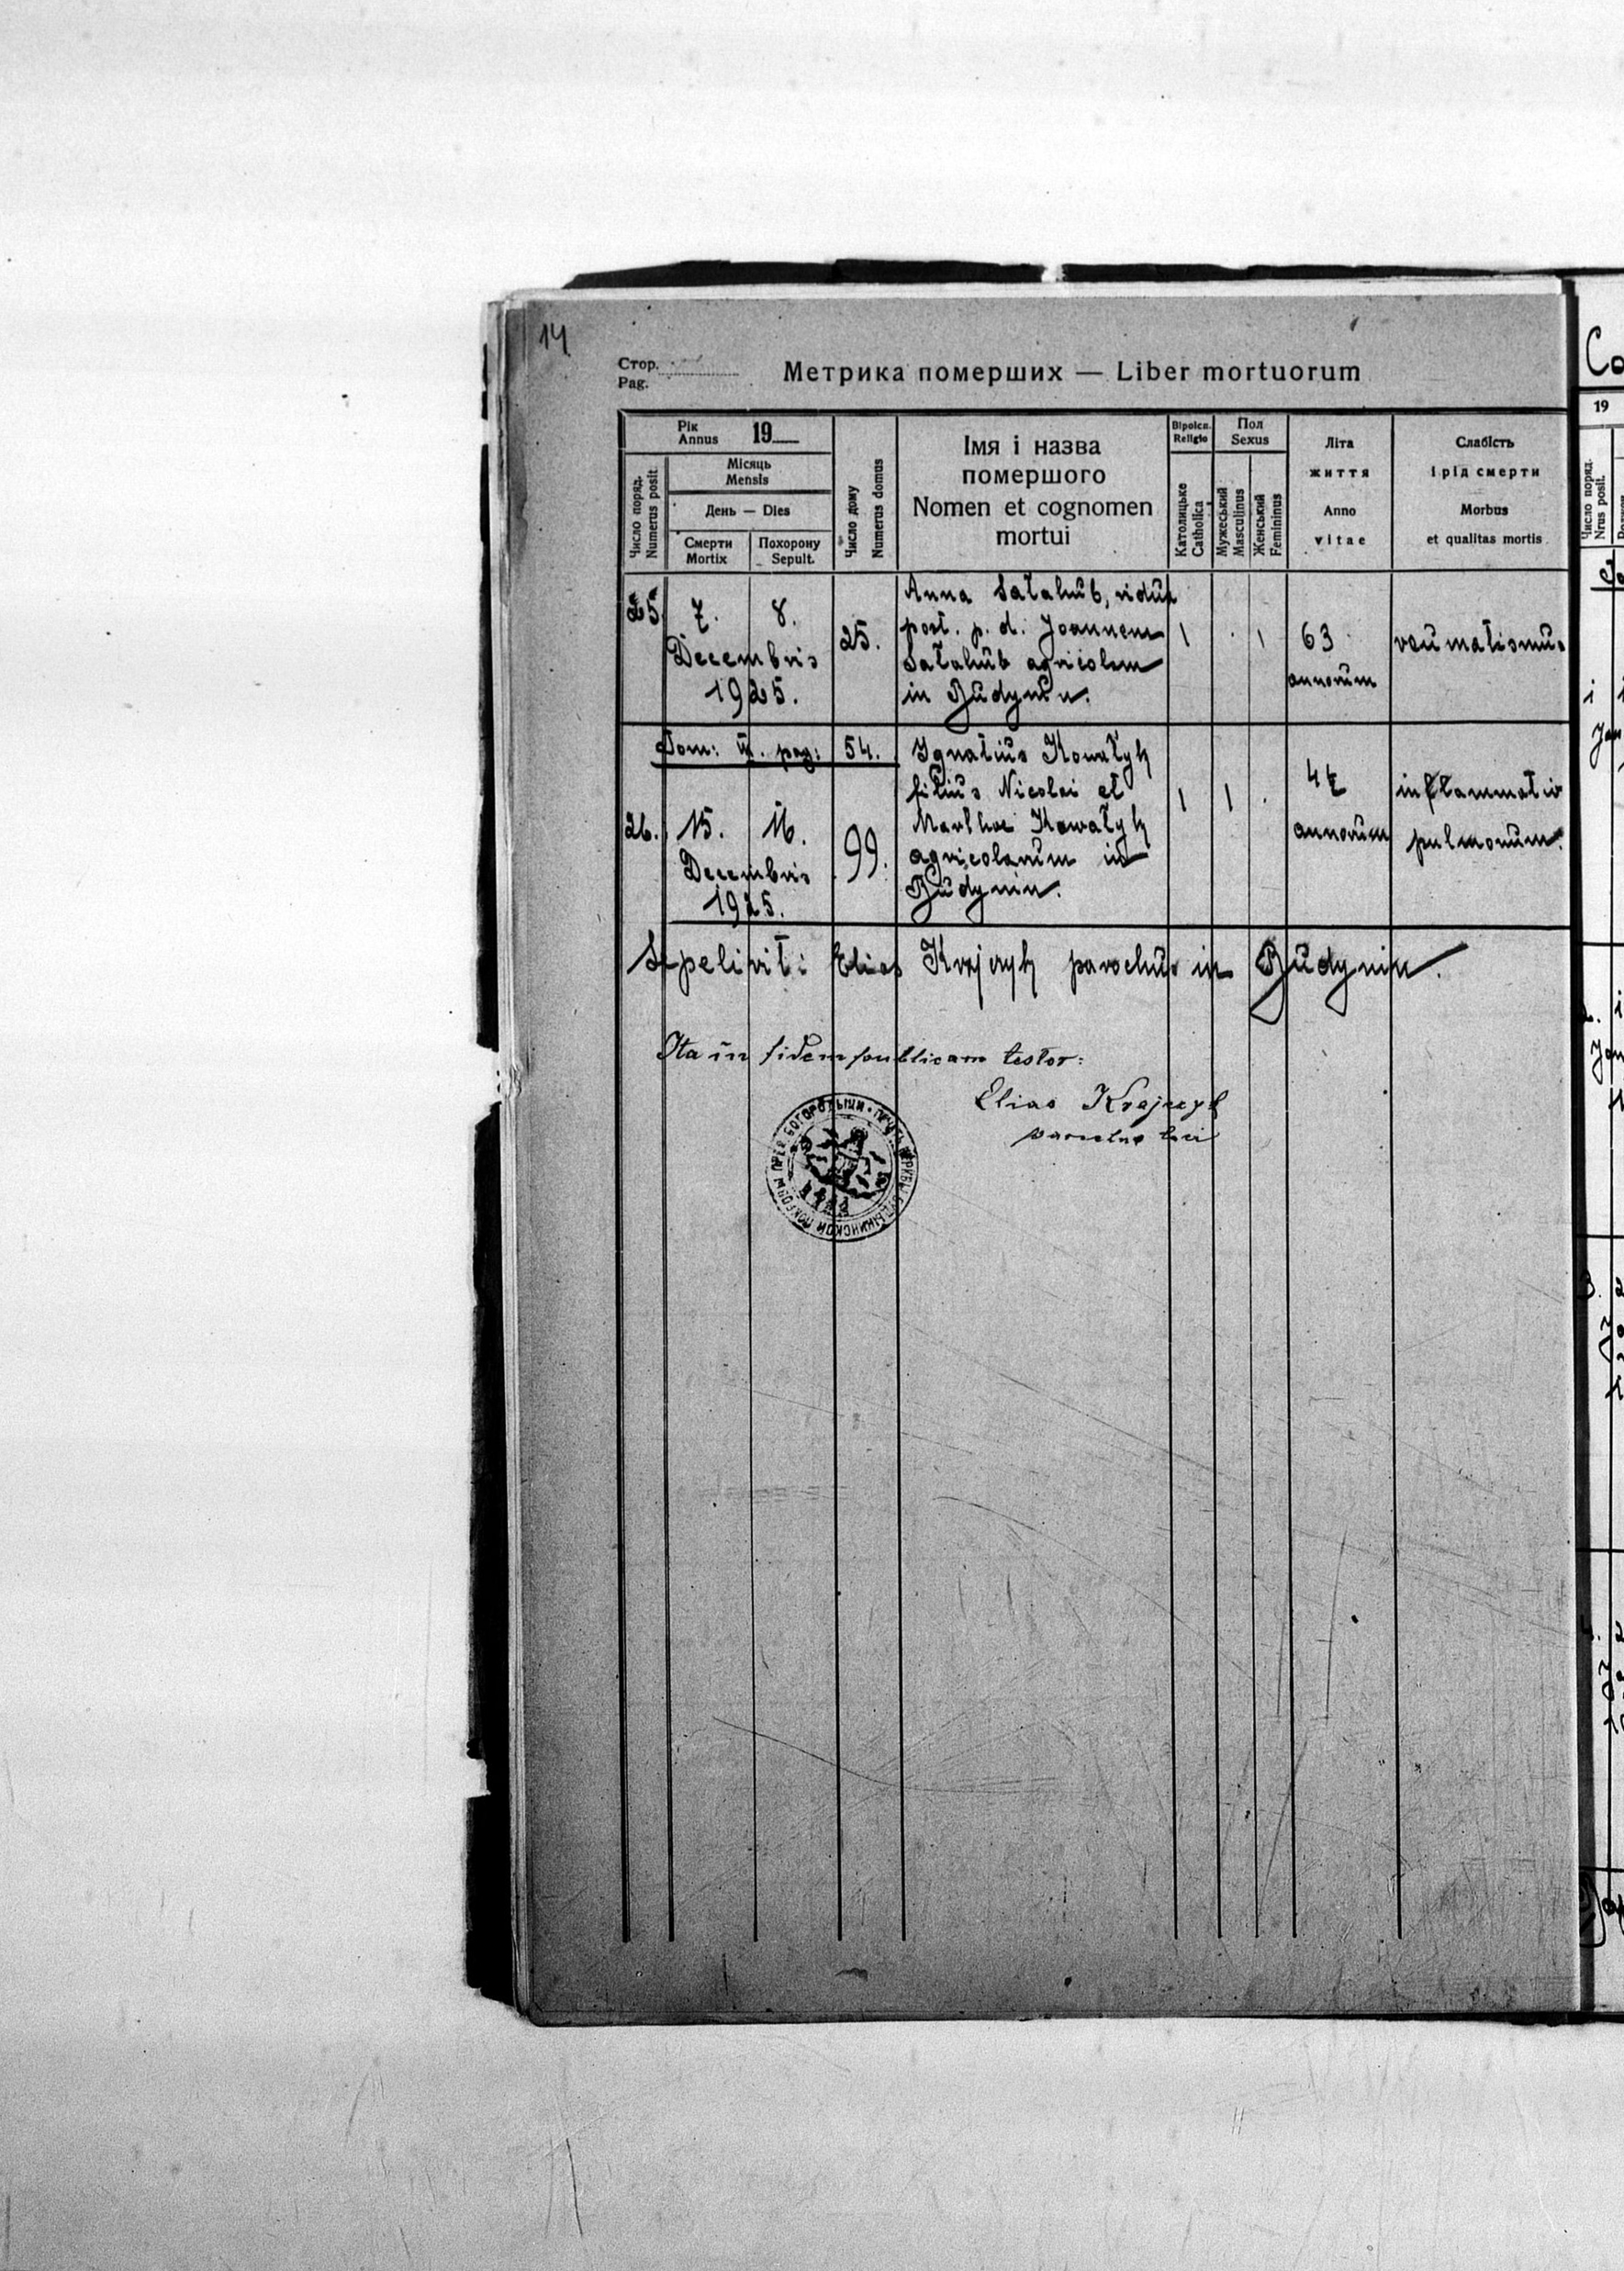 14
Стор.
Pag.
Метрика померших — Liber mortuorum
Рік
Annus 19
Місяць
Mensis
День — Dies
Смерти
Mortix
Похорону
Sepult.
Число поряд.
Numerus posit.
Число дому
Numerus domus
Імя і назва
помершого
Nomen et cognomen
mortui
Віроісп.
Religio
Католицьке
Catholica
Пол
Sexus
Мужеський
Masculinus
Женський
Femininus
Літа
життя
Anno
vitae
Слабість
і рід смерти
Morbus
et qualitas mortis
25. 7. 8.
Decembris
1925.
25.
Anna Sałahub, vidua
post. p. d. Joannem
Sałahub agricolam
in Budynin.
1 . 1
63
annorum
reumatismus
Tom: pag: 54.
26. 15. 16.
Decembris
1925.
99.
Ignatius Kowałyk
filius Nicolai et
Marthae Kowałyk
agricolarum in
Budynin.
1 1 .
annorum
inflammatio
pulmonum.
Sepelivit: Elias Krajczyk parochus in Budynin.
Ita in fidem publicam testor:
Elias Krajczyk
parochus loci
19
Число поряд.
Nrus posit.